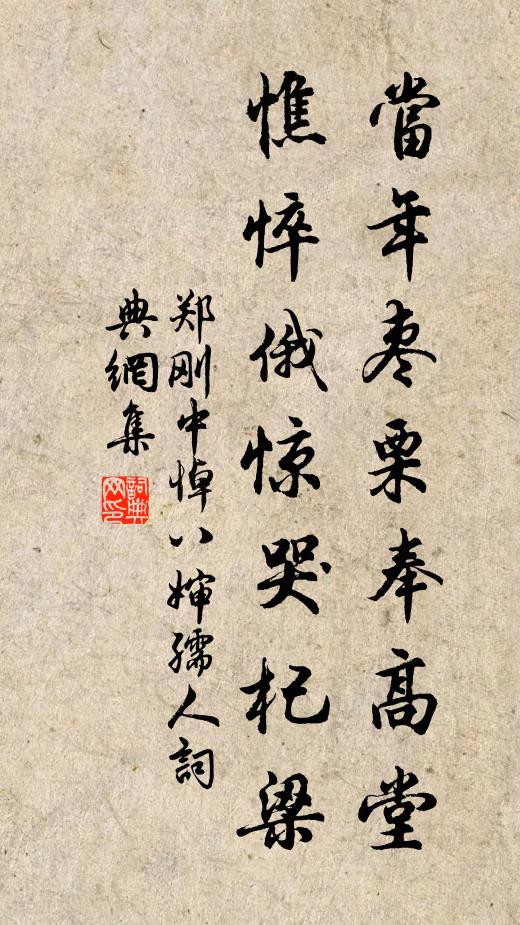 當年枣栗奉高堂
憔悴俄惊哭杞梁
郑刚中悼八婶孺人詞
典網集
詞典网印